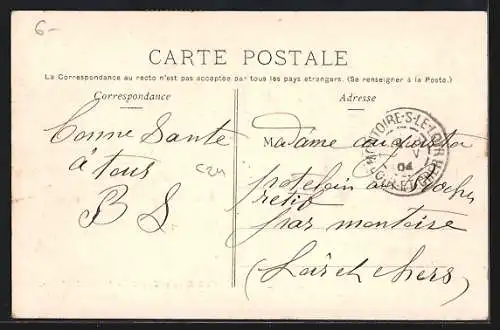 6-
CARTE POSTALE
La Correspondance au recto n'est pas acceptée par tous les pays étrangers. (Se renseigner à la Poste.)
Correspondance
Adresse
Bonne Santé
à tous
B S
C24
Madame augusta
MONTOIRE-S-LE-LOIR
V
04
LOIR-ET-CHER
potelain au Roches
par montoire
(Loir et chers)